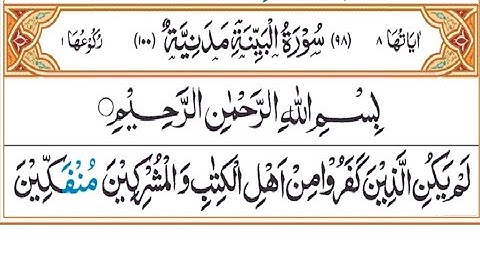 اٰیَاتُهَا ٨ (٩٨) سُوْرَةُ الْبَیِّنَةِ مَدَنِیَّةٌ (١٠٠) رُكُوْعُهَا ١
بِسْمِ اللّٰهِ الرَّحْمٰنِ الرَّحِیْمِ
لَمْ یَكُنِ الَّذِیْنَ كَفَرُوْا مِنْ اَهْلِ الْكِتٰبِ وَ الْمُشْرِكِیْنَ مُنْفَكِّیْنَ